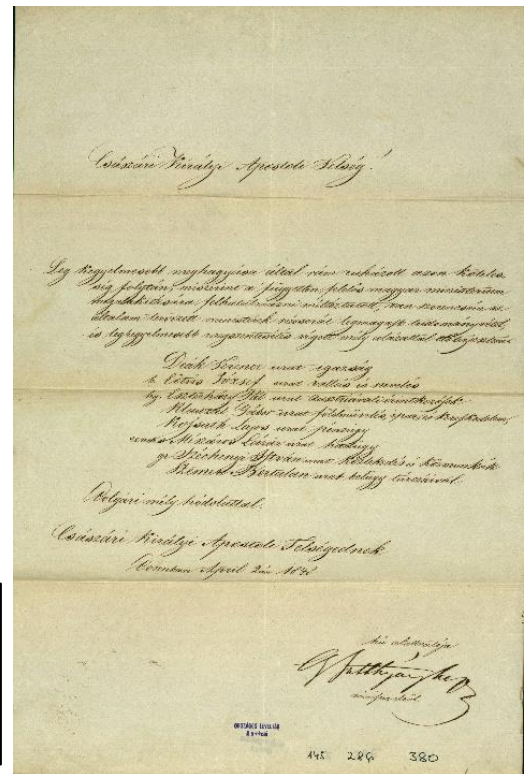 Császári Királyi Apostoli Felség!
Leg kegyelmesebb meghagyása által rám ruházott azon köteles
ség folytán, miszerint a független felelős magyar ministerium
van szerencsém az
általam tervezett ministerek névsorát legmagasb tudomásvétel
és legkegyelmesebb megerősítés végett mély alázattal
Deák Ferencz urat igazság
b. Eötvös József urat vallás és nevelés
hg. Eszterházy Pál urat
Klauzál Gábor urat földmivelés, ipar, és kereskedelem,
Kossuth Lajos urat pénzügy
Mészáros Lázár urat hadügy
gr. Széchenyi István urat közlekedés és közmunkák
Szemere Bertalan urat belügy tárczáival.
Polgári mély hódolattal.
Császári Királyi Apostoli Felségednek
April 2án 1848
hű alattvalója
G Batthyány
ORSZÁGOS LEVÉLTÁR
145 286 380